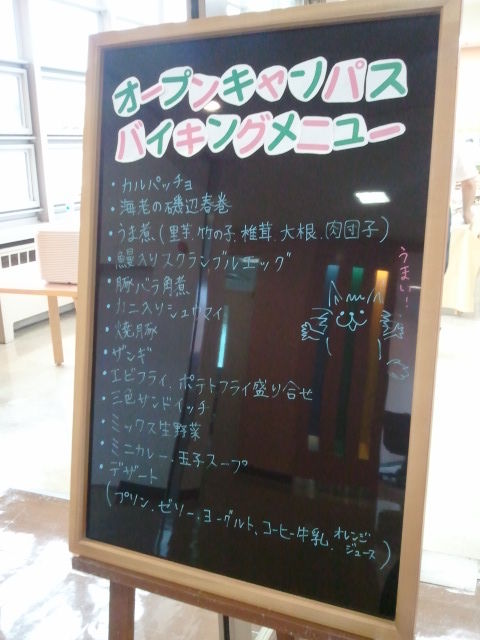 オープンキャンパス
バイキングメニュー
・カルパッチョ
・海老の磯辺春巻
・うま煮(里芋、竹の子、椎茸、大根、肉団子)
・鰻入りスクランブルエッグ
・豚バラ角煮
・カニ入りシュウマイ
・焼豚
・ザンギ
・エビフライ、ポテトフライ盛り合せ
・三色サンドイッチ
・ミックス生野菜
・ミニカレー、玉子スープ
・デザート
(プリン、ゼリー、ヨーグルト、コーヒー牛乳、オレンジジュース)
うまい!